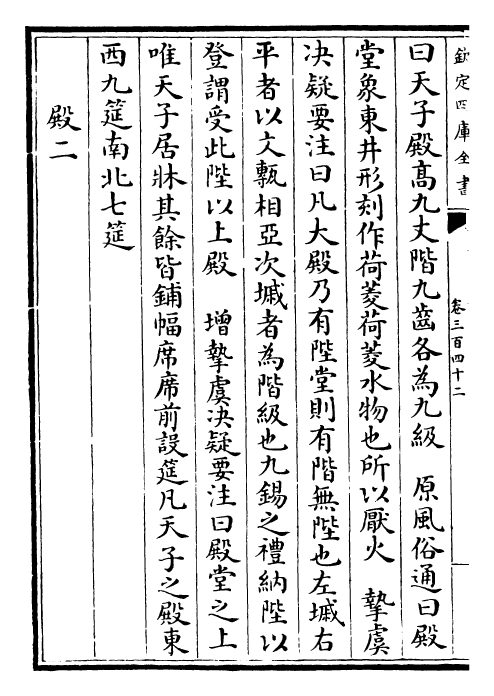 欽定四庫全書
卷三百四十二
曰天子殿髙九丈階九齒各為九級 原風俗通曰殿
堂象東井形刻作荷菱荷菱水物也所以厭火 摯虞
决疑要注曰凡大殿乃有陛堂則有階無陛也左墄右
平者以文甎相亞次墄者為階級也九錫之禮納陛以
登謂受此陛以上殿 增摯虞决疑要注曰殿堂之上
唯天子居牀其餘皆鋪幅席席前設筵凡天子之殿東
西九筵南北七筵
殿二